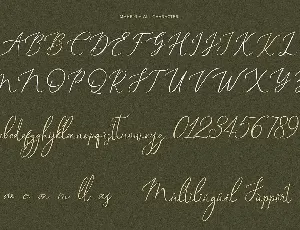 A B C D E F G H I J K L
M N O P Q R S T U V W X Y
abcdefghijklmnopqrstuvwxyz 0123456789
Multilingual Support